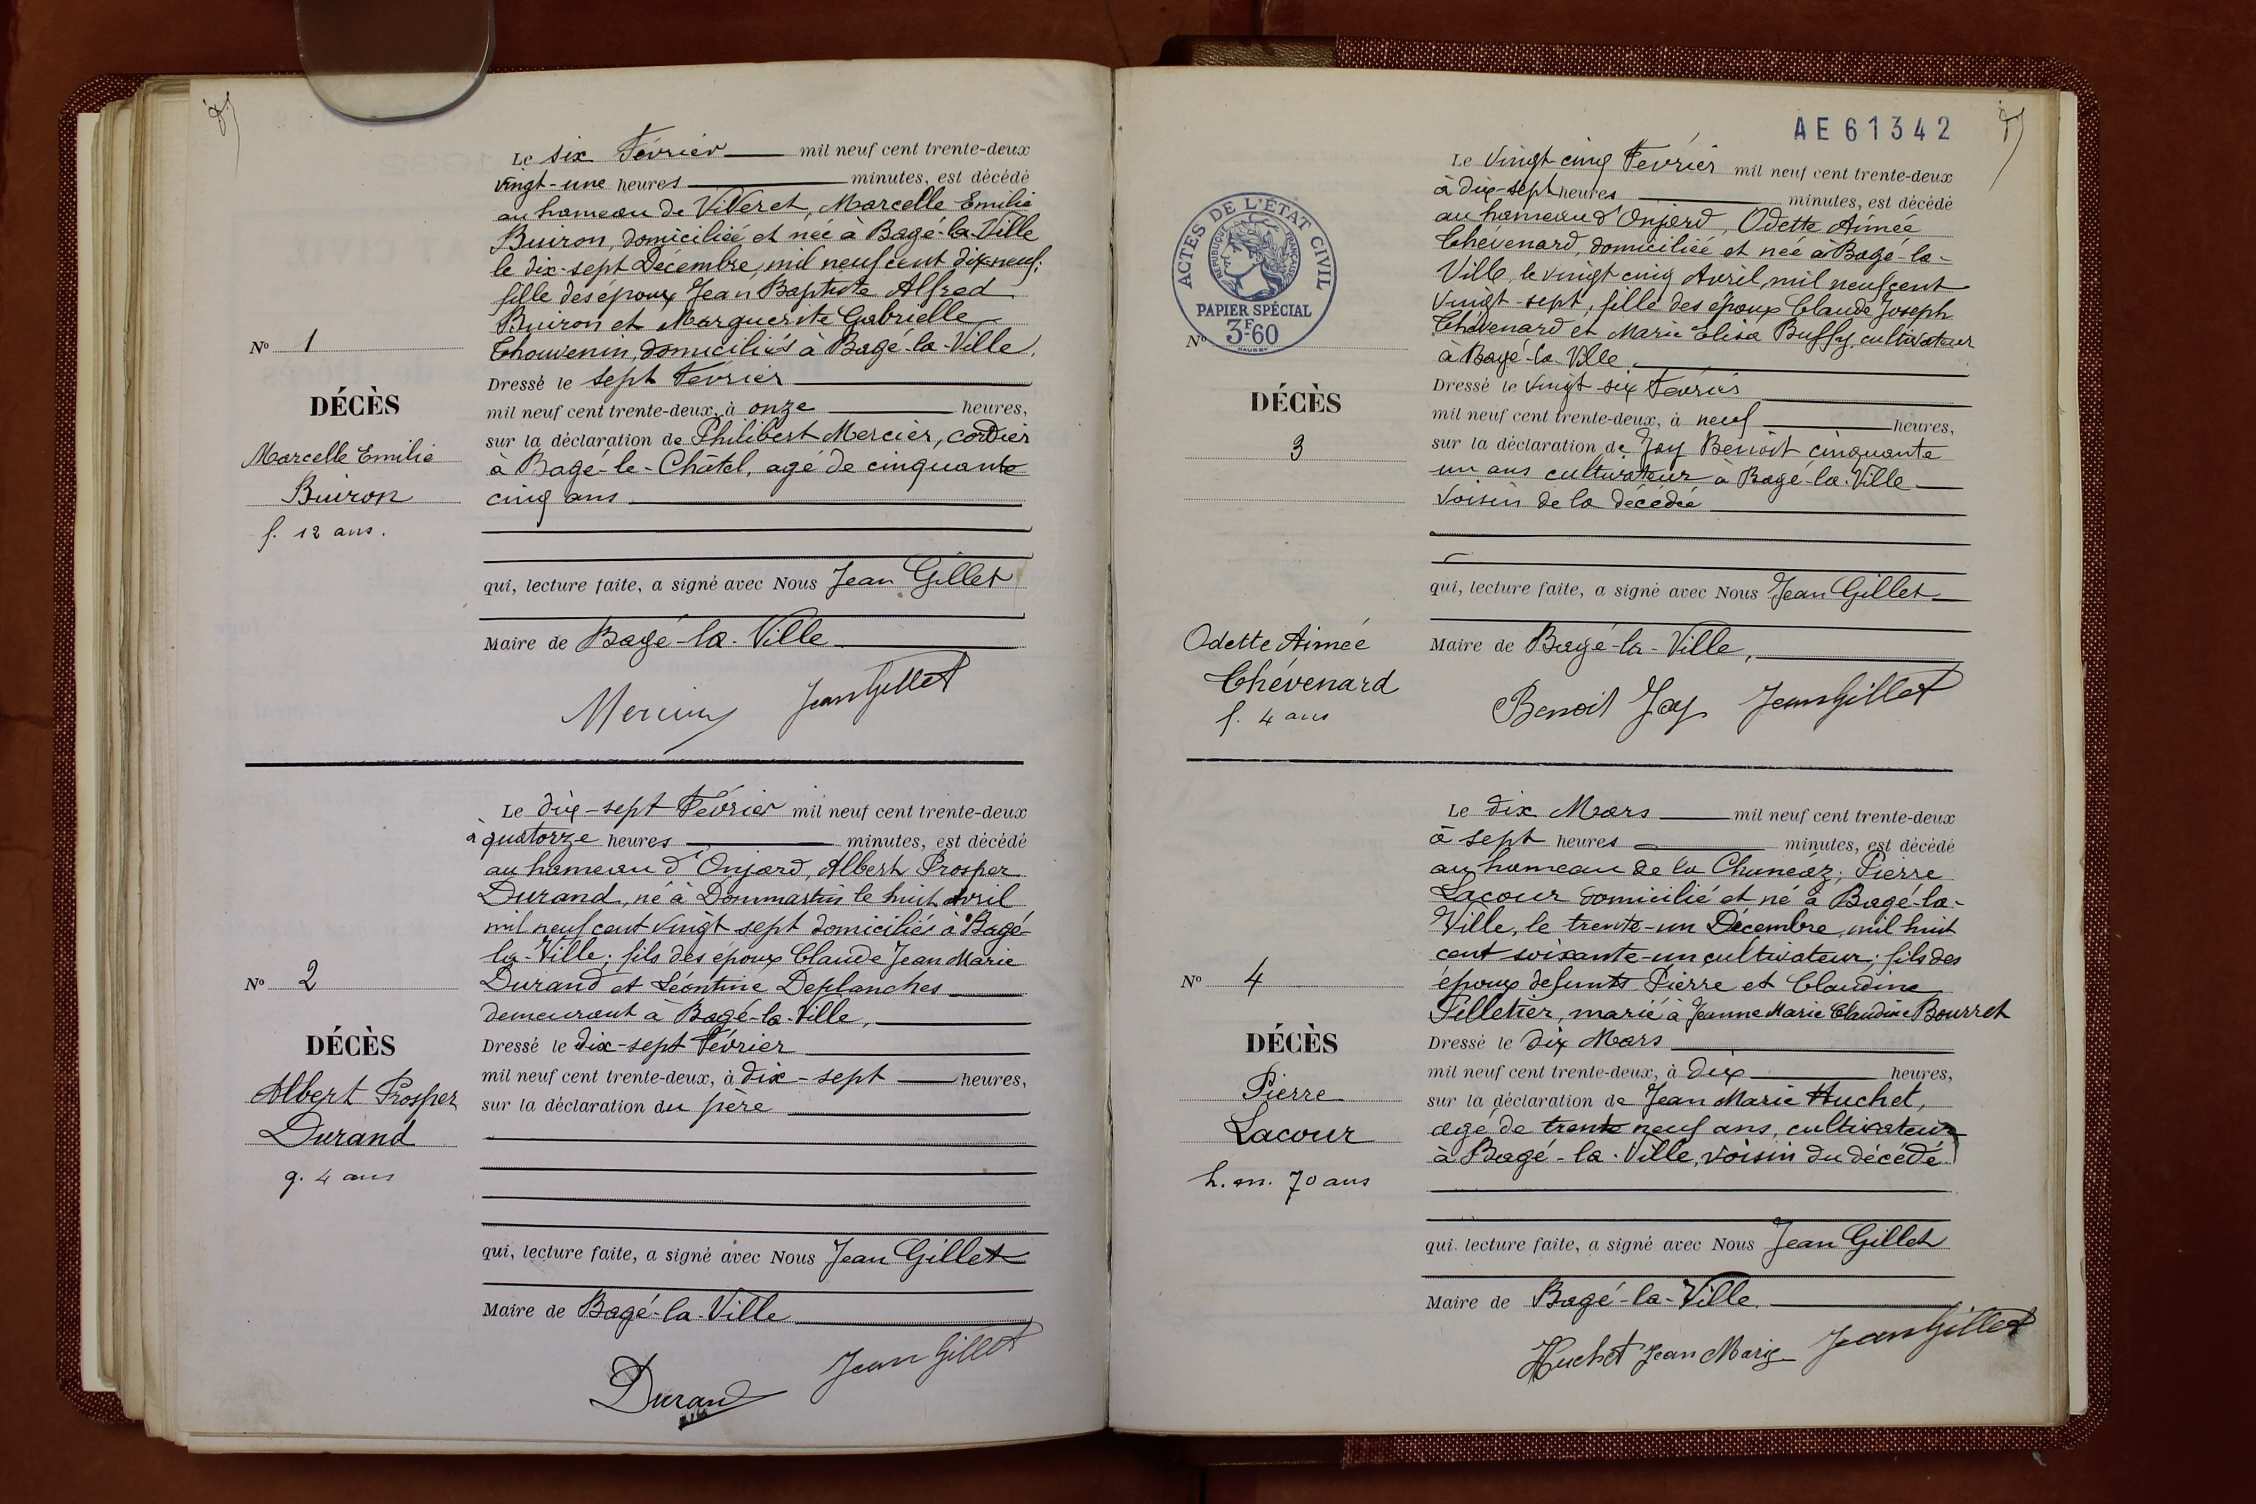 Le six Février mil neuf cent trente-deux
vingt-une heures minutes, est décédé
au hameau de Villeret, Marcelle Emilie
Buiron, domiciliée et née à Bagé-la-Ville
le dix-sept Décembre, mil neuf cent dix neuf;
fille des époux Jean Baptiste Alfred
Buiron et Marguerite Gabrielle
Thouvenin, domiciliés à Bagé-la-Ville.
Nº 1
DÉCÈS
Marcelle Emilie
Buiron
f. 12 ans.
Dressé le sept Février
mil neuf cent trente-deux, à onze heures,
sur la déclaration de Philibert Mercier, cordier
à Bagé-le-Châtel, agé de cinquante
cinq ans
qui, lecture faite, a signé avec Nous Jean Gillet
Maire de Bagé-la-Ville
Mercier Jean Gillet
Le dix-sept Février mil neuf cent trente-deux
à quatorze heures minutes, est décédé
au hameau d'Onjard, Albert Prosper
Durand, né à Dommartin le huit avril
mil neuf cent vingt sept domiciliés à Bagé-
la-Ville; fils des époux Claude Jean Marie
Durand et Léontine Deplanches
demeurant à Bagé-la-Ville,
Nº 2
DÉCÈS
Albert Prosper
Durand
g. 4 ans
Dressé le dix-sept Février
mil neuf cent trente-deux, à dix-sept heures,
sur la déclaration du père
qui, lecture faite, a signé avec Nous Jean Gillet
Maire de Bagé-la-Ville
Durand Jean Gillet
AE 61342
ACTES DE L'ÉTAT CIVIL
RÉPUBLIQUE FRANÇAISE
PAPIER SPÉCIAL
3F60
Le vingt-cinq Février mil neuf cent trente-deux
à dix-sept heures minutes, est décédé
au hameau d'Onjard, Odette Aimée
Chévenard, domiciliée et née à Bagé-la-
Ville, le vingt cinq Avril, mil neuf cent
vingt-sept, fille des époux Claude Joseph
Chévenard et Marie Elisa Buffy, cultivateur
à Bagé-la-Ville.
Nº
DÉCÈS
3
Odette Aimée
Chévenard
f. 4 ans
Dressé le vingt-six Février
mil neuf cent trente-deux, à neuf heures,
sur la déclaration de Jay Benoit cinquante
un ans cultivateur à Bagé-la-Ville
Voisin de la décédée
qui, lecture faite, a signé avec Nous Jean Gillet
Maire de Bagé-la-Ville,
Benoit Jay Jean Gillet
Le dix Mars mil neuf cent trente-deux
à sept heures minutes, est décédé
au hameau de la Chanéaz; Pierre
Lacour domicilié et né à Bagé-la-
Ville, le trente-un Décembre, mil huit
cent soixante-un, cultivateur; fils des
époux defunts Pierre et Claudine
Pelletier, marié à Jeanne Marie Claudine Bourret
Nº 4
DÉCÈS
Pierre
Lacour
h. m. 70 ans
Dressé le dix Mars
mil neuf cent trente-deux, à dix heures,
sur la déclaration de Jean Marie Huchet,
agé de trente neuf ans, cultivateur
à Bagé-la-Ville, voisin du décédé
qui, lecture faite, a signé avec Nous Jean Gillet
Maire de Bagé-la-Ville.
Huchet Jean Marie Jean Gillet